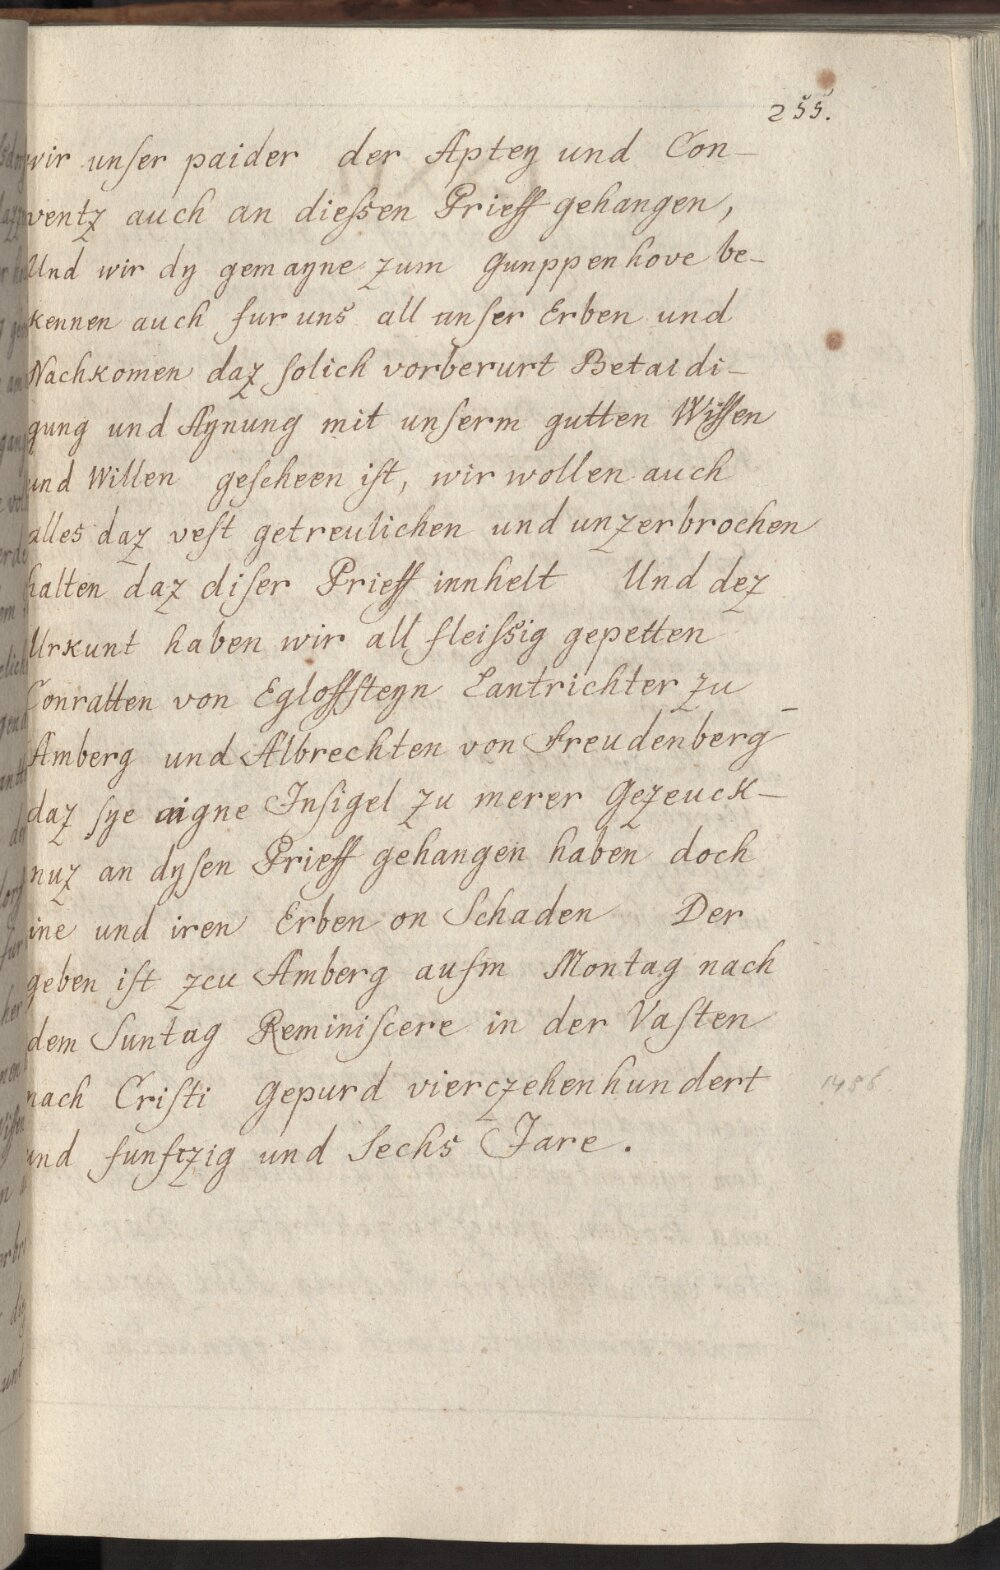 255.
wir unſer paider der Aptey und Con-
ventz auch an dieſsen Prieff gehangen,
Und wir dy gemayne zum Gunppenhove be-
kennen auch fur uns all unſer Erben und
Nachkomen daz ſolich vorberurt Betaidi-
gung und Aynung mit unſerm gutten Wiſſen
und Willen geſcheen iſt, wir wollen auch
alles daz veſt getreulichen und unzerbrochen
halten daz diſer Prieff innhelt Und dez
Urkunt haben wir all fleiſsig gepetten
Conratten von Egloffſteyn Lantrichter zu
Amberg und Albrechten von Freudenberg-
daz ſye aigne Inſigel zu merer Gezeuck-
nuz an dyſen Prieff gehangen haben doch
ine und iren Erben on Schaden Der
geben iſt zcu Amberg aufm Montag nach
dem Suntag Reminiſcere in der Vaſten
nach Criſti Gepurd vierczehenhundert 1456
und funftzig und Sechs Jare.